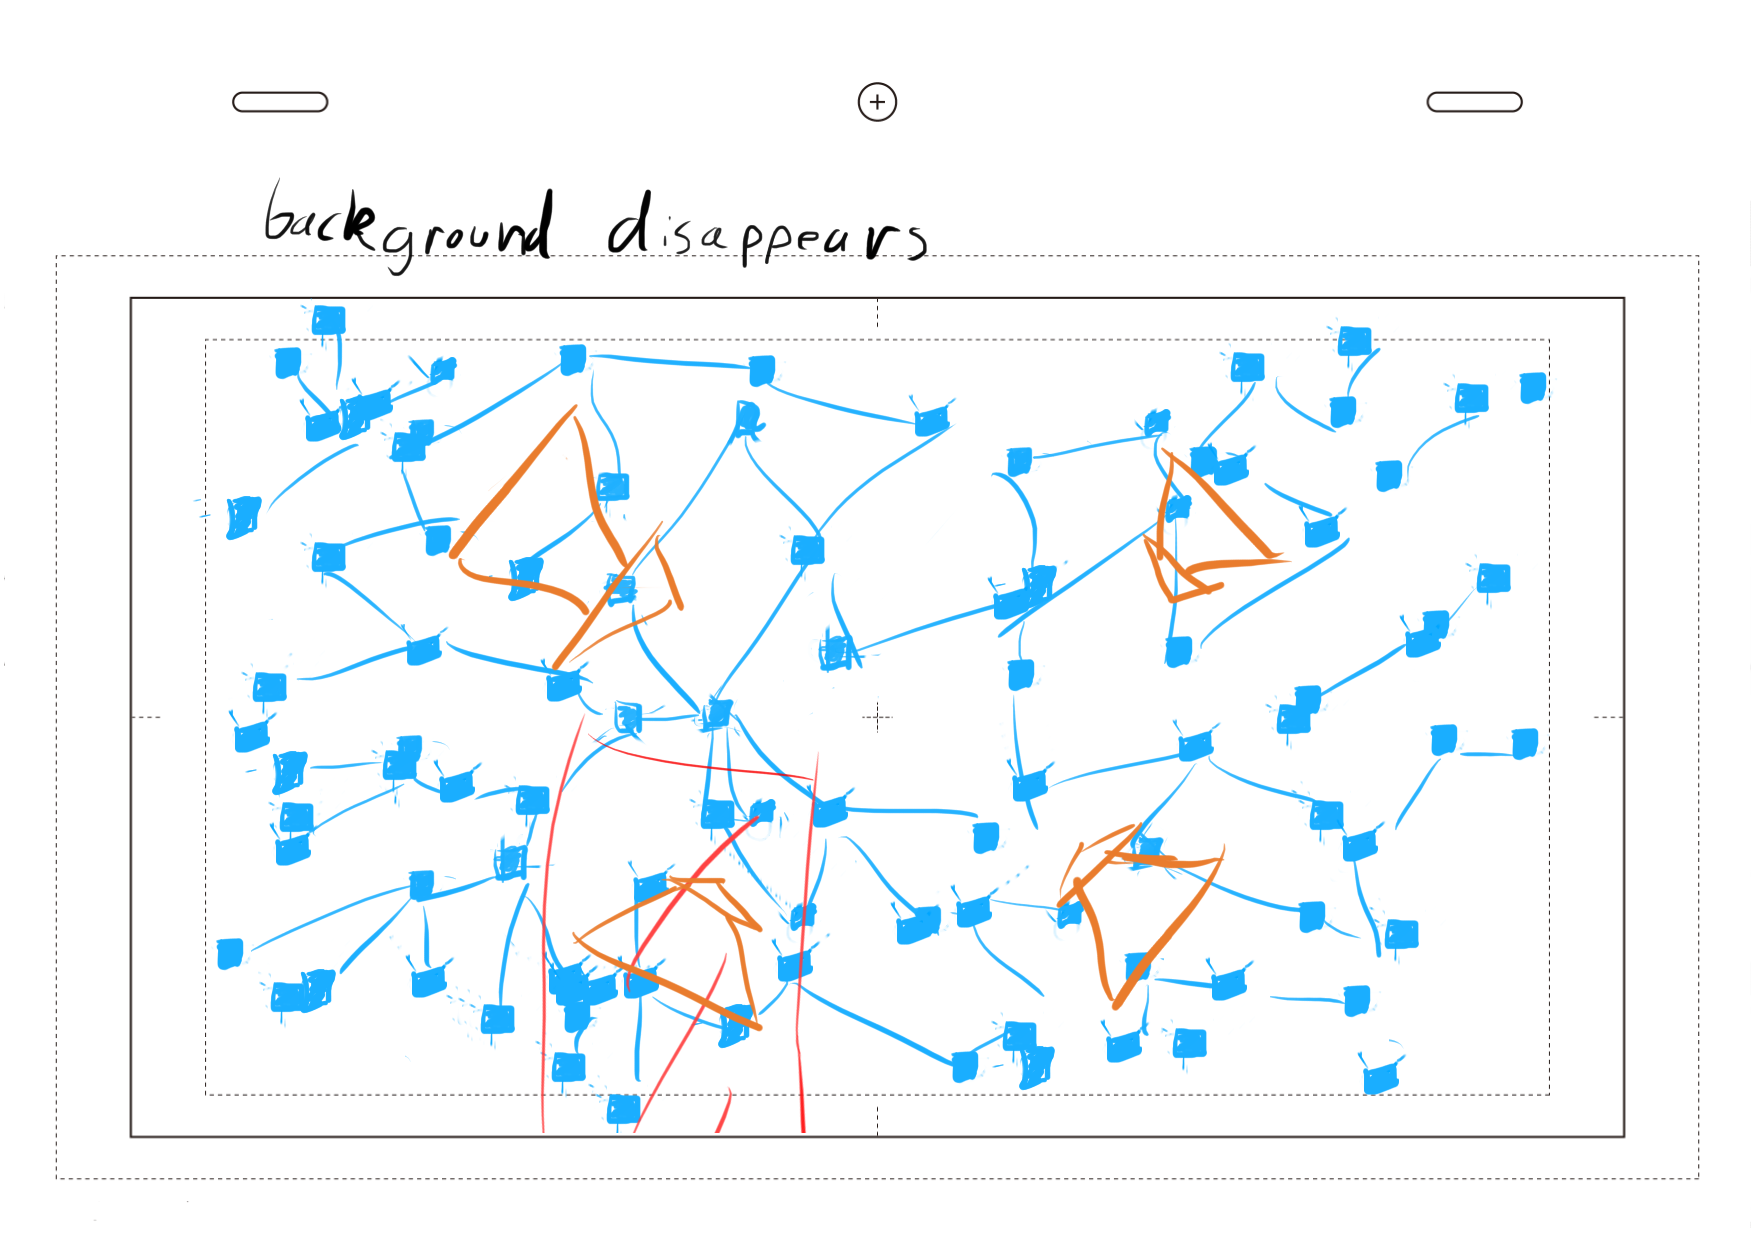 background disappears